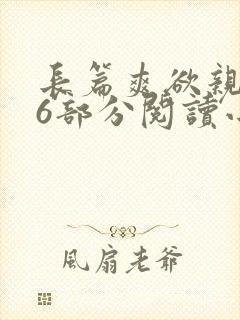 長篇爽欲親
6部分閱讀小
風扇老爺